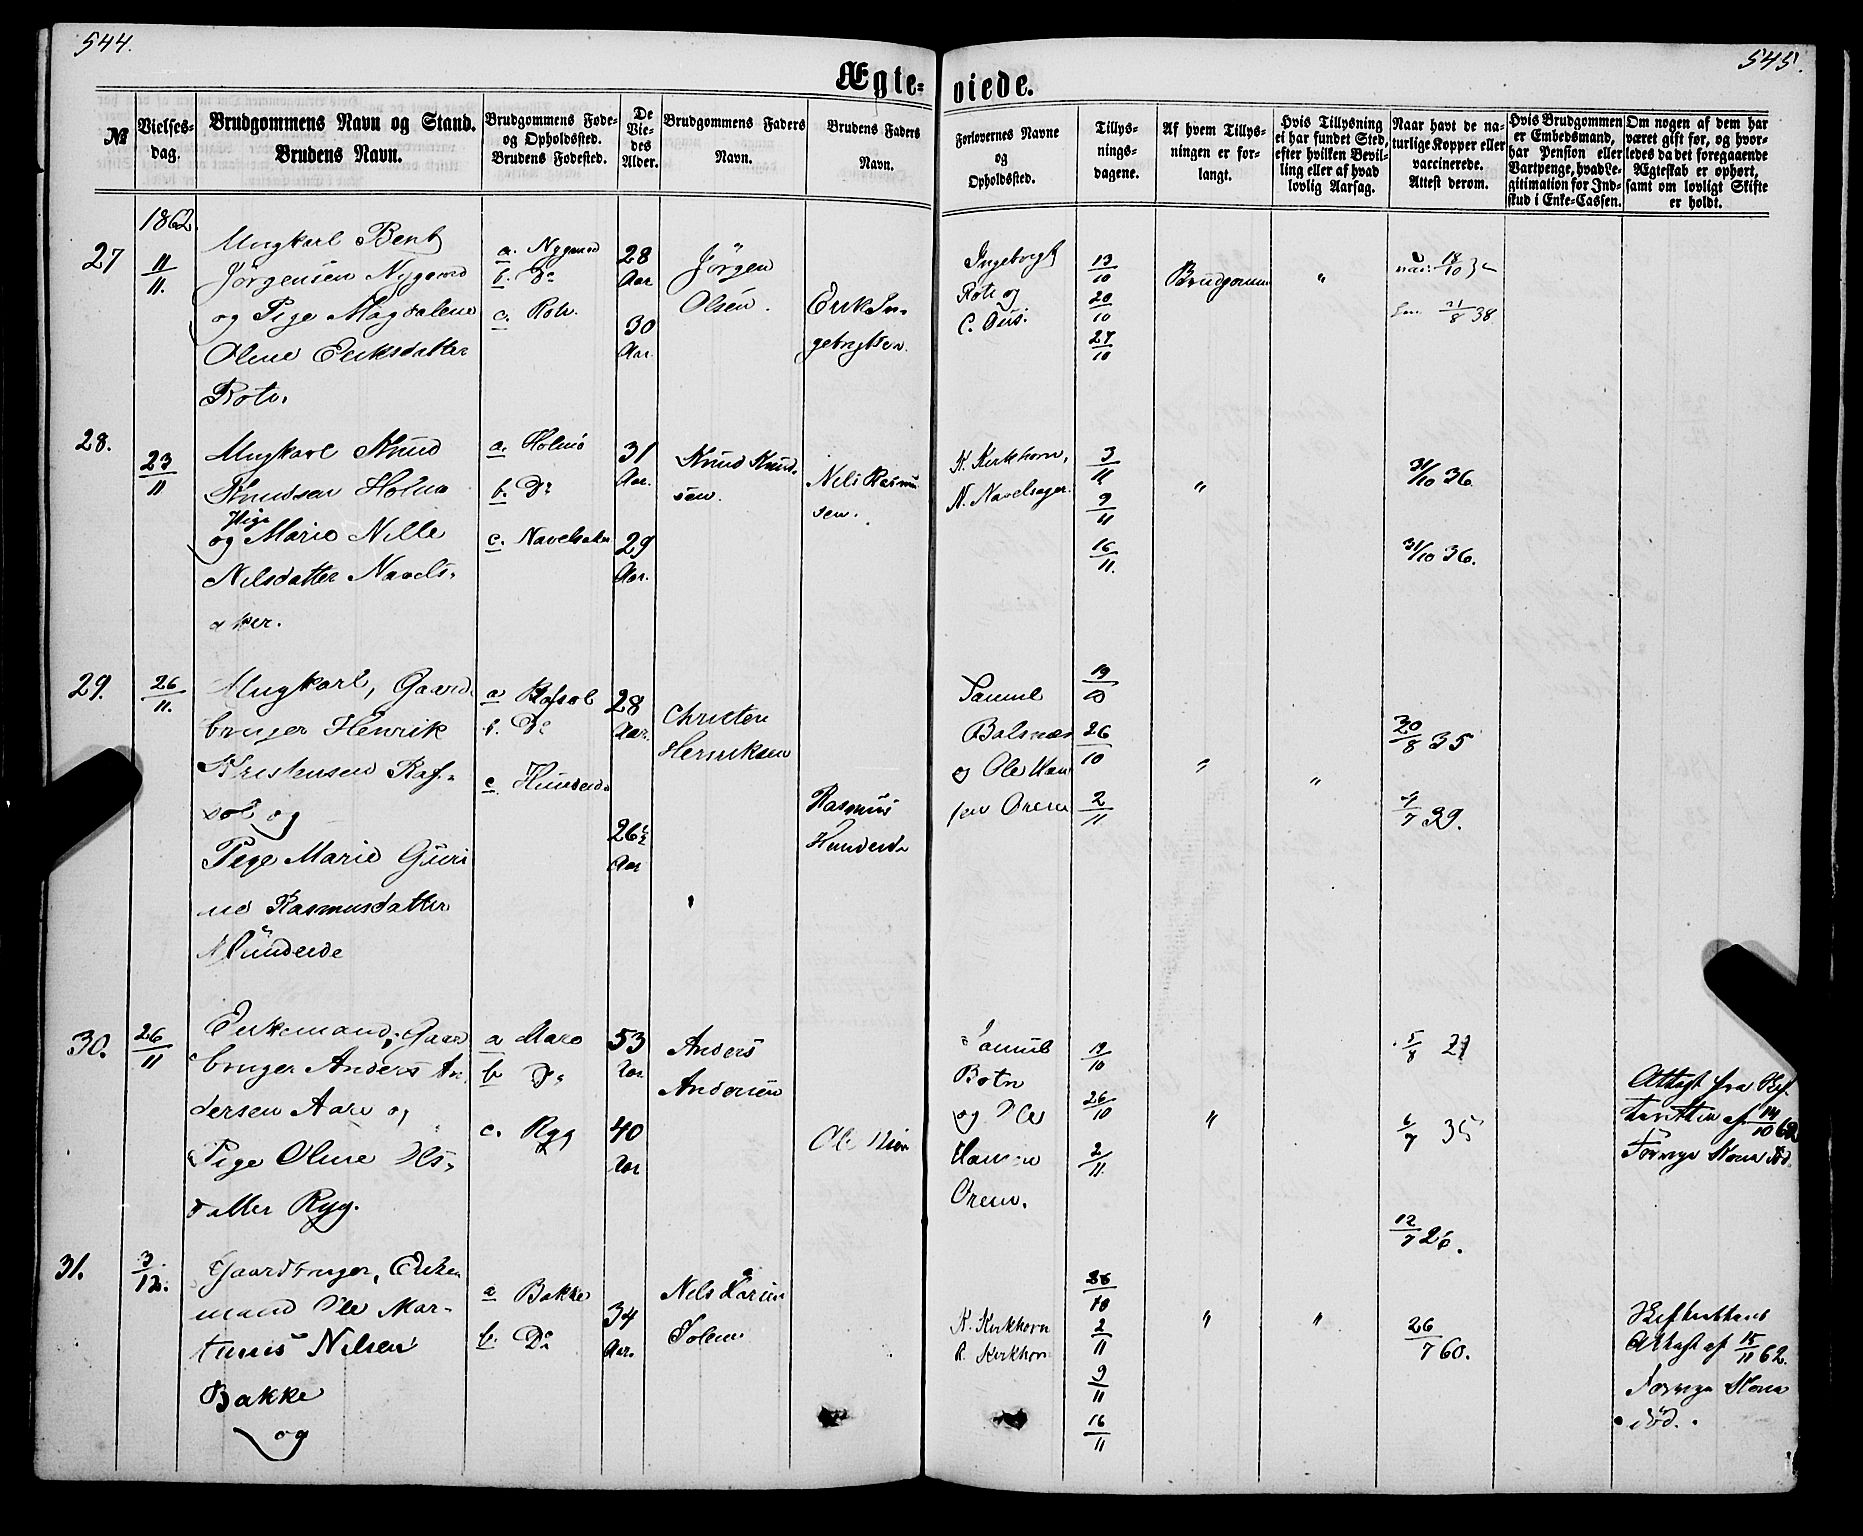 544.
545.
Ægte-
viede.
№
Vielses-
dag.
Brudgommens Navn og Stand.
Brudens Navn.
Brudgommens Føde-
og Opholdssted.
Brudens Fødested.
De
Vie-
des
Alder.
Brudgommens Faders
Navn.
Brudens Faders
Navn.
Forlovernes Navne
og
Opholdssted.
Tillys-
nings-
dagene.
Af hvem Tillys-
ningen er for-
langt.
Hvis Tillysning
ei har fundet Sted,
efter hvilken Bevil-
ling eller af hvad
lovlig Aarsag.
Naar havt de na-
turlige Kopper eller
vaccinerede.
Attest derom.
Hvis Brudgommen
er Embedsmand,
har Pension eller
Vartpenge, hvad Le-
gitimation for Ind-
skud i Enke-Cassen.
Om nogen af dem har
været gift før, og hvor-
ledes da det foregaaende
Ægteskab er ophørt,
samt om lovligt Skifte
er holdt.
1862.
27
11/11.
Ungkarl Bent
Jørgensen Nygaard
og Pige Magdalene
Oline Eriksdatter
Rote.
a. Nygaard
b. Do
c. Rote.
28
Aar
30
Aar.
Jørgen
Olsen.
Erik In-
gebrigtsen.
Ingebrigt
Rote og
13/10
20/10
27/10
Brudgomm
"
18/10
21/8 38
28.
23/11
Ungkarl Knud
Knudsen Holmø
Pige
og Marie Nille
Nilsdatter Navels-
aker.
a. Holmø
b. Do
c. Navelsaker
31
Aar.
29
Aar.
Knud Knud-
sen.
Nils Rasmu
sen.
K. Kirkhorn,
N. Navelsager.
3/11
9/11
16/11.
"
31/10 36.
31/10 36.
29.
26/11.
Ungkarl, Gaard-
bruger Henrik
Kristensen Raf-
sol og
Pige Marie Guri
ne Rasmusdatter
Hundeide
a Rafsol
b. Do
c Hundeide
28
Aar.
26½
Aar
Christen
Henriksen
Rasmus
Hundeide
Samuel
Balsnæs
og Ole Han
sen Orem
19/10
26/10
2/11
"
"
20/8 35
4/7 39.
30.
26/11
Enkemand, Gaard
bruger Anders An
dersen Aare og
Pige Oline Ols-
datter Ryg.
a Aare
b Do
c. Ryg
53
Aar
40
Aar
Anders
Andersen
Samuel
Botn
og Ole
Hansen
Orem.
19/10
26/10
2/11.
"
5/8 21
6/7 35
Attest fra Skif-
teretten af 14/10 62
Forrige Kone død.
31.
3/12.
Gaardbruger, Enke
mand Ole Mar-
tinus Nilsen
Bakke
og
a Bakke
b. Do
34
Aar.
Nils Larsen
Solem
K. Kirkhorn
R. Kirkhorn
26/10
2/11
9/11
16/11
"
"
12/7 26.
26/7 60.
Skifterettens
Attest af 15/11 62.
Forrige Kone
død.